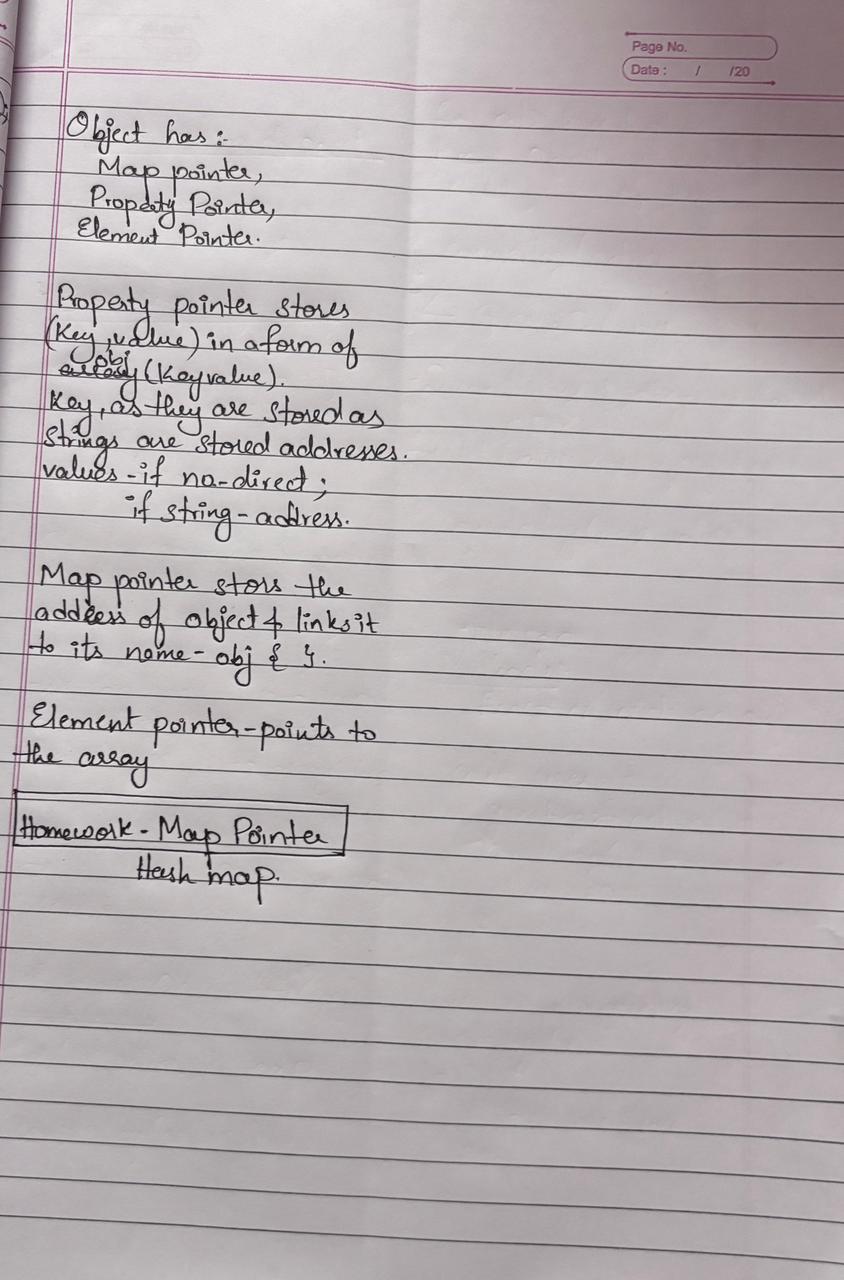 Page No.
Date : / /20
Object has :-
Map pointer,
Property Pointer,
Element Pointer.
Property pointer stores
(Key, value) in a form of
obj
(Key value).
Key, as they are stored as
strings are stored addresses.
values - if no - direct ;
if string - address.
Map pointer stors the
address of object & links it
to its name - obj { }.
Element pointer - points to
the array
Homework - Map Pointer
Hash map.